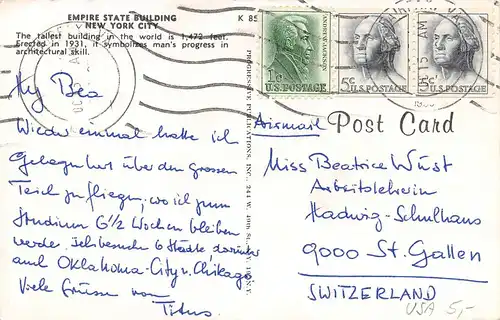 EMPIRE STATE BUILDING
NEW YORK CITY
K 85
The tallest building in the world is 1,472 feet.
Erected in 1931, it symbolizes man's progress in
architectural skill.
My Bea
Wieder einmal hatte ich
Gelegenheit über den grossen
Teich zu fliegen, wo ich zum
Studium 6 1/2 Wochen bleiben
werde. Ich besuche 6 Städte darunter
auch Oklahoma-City u. Chikago
Viele Grüsse von
Titus.
PROGRESSIVE PUBLICATIONS, INC., 244 W. 49th St., N.Y.
1c
U.S. POSTAGE
ANDREW JACKSON
5c
U.S. POSTAGE
5c
U.S. POSTAGE
Airmail
Post Card
Miss Beatrice Wüst
Arbeitslehrerin
Hadwig-Schulhaus
9000 St. Gallen
SWITZERLAND
USA 5,-